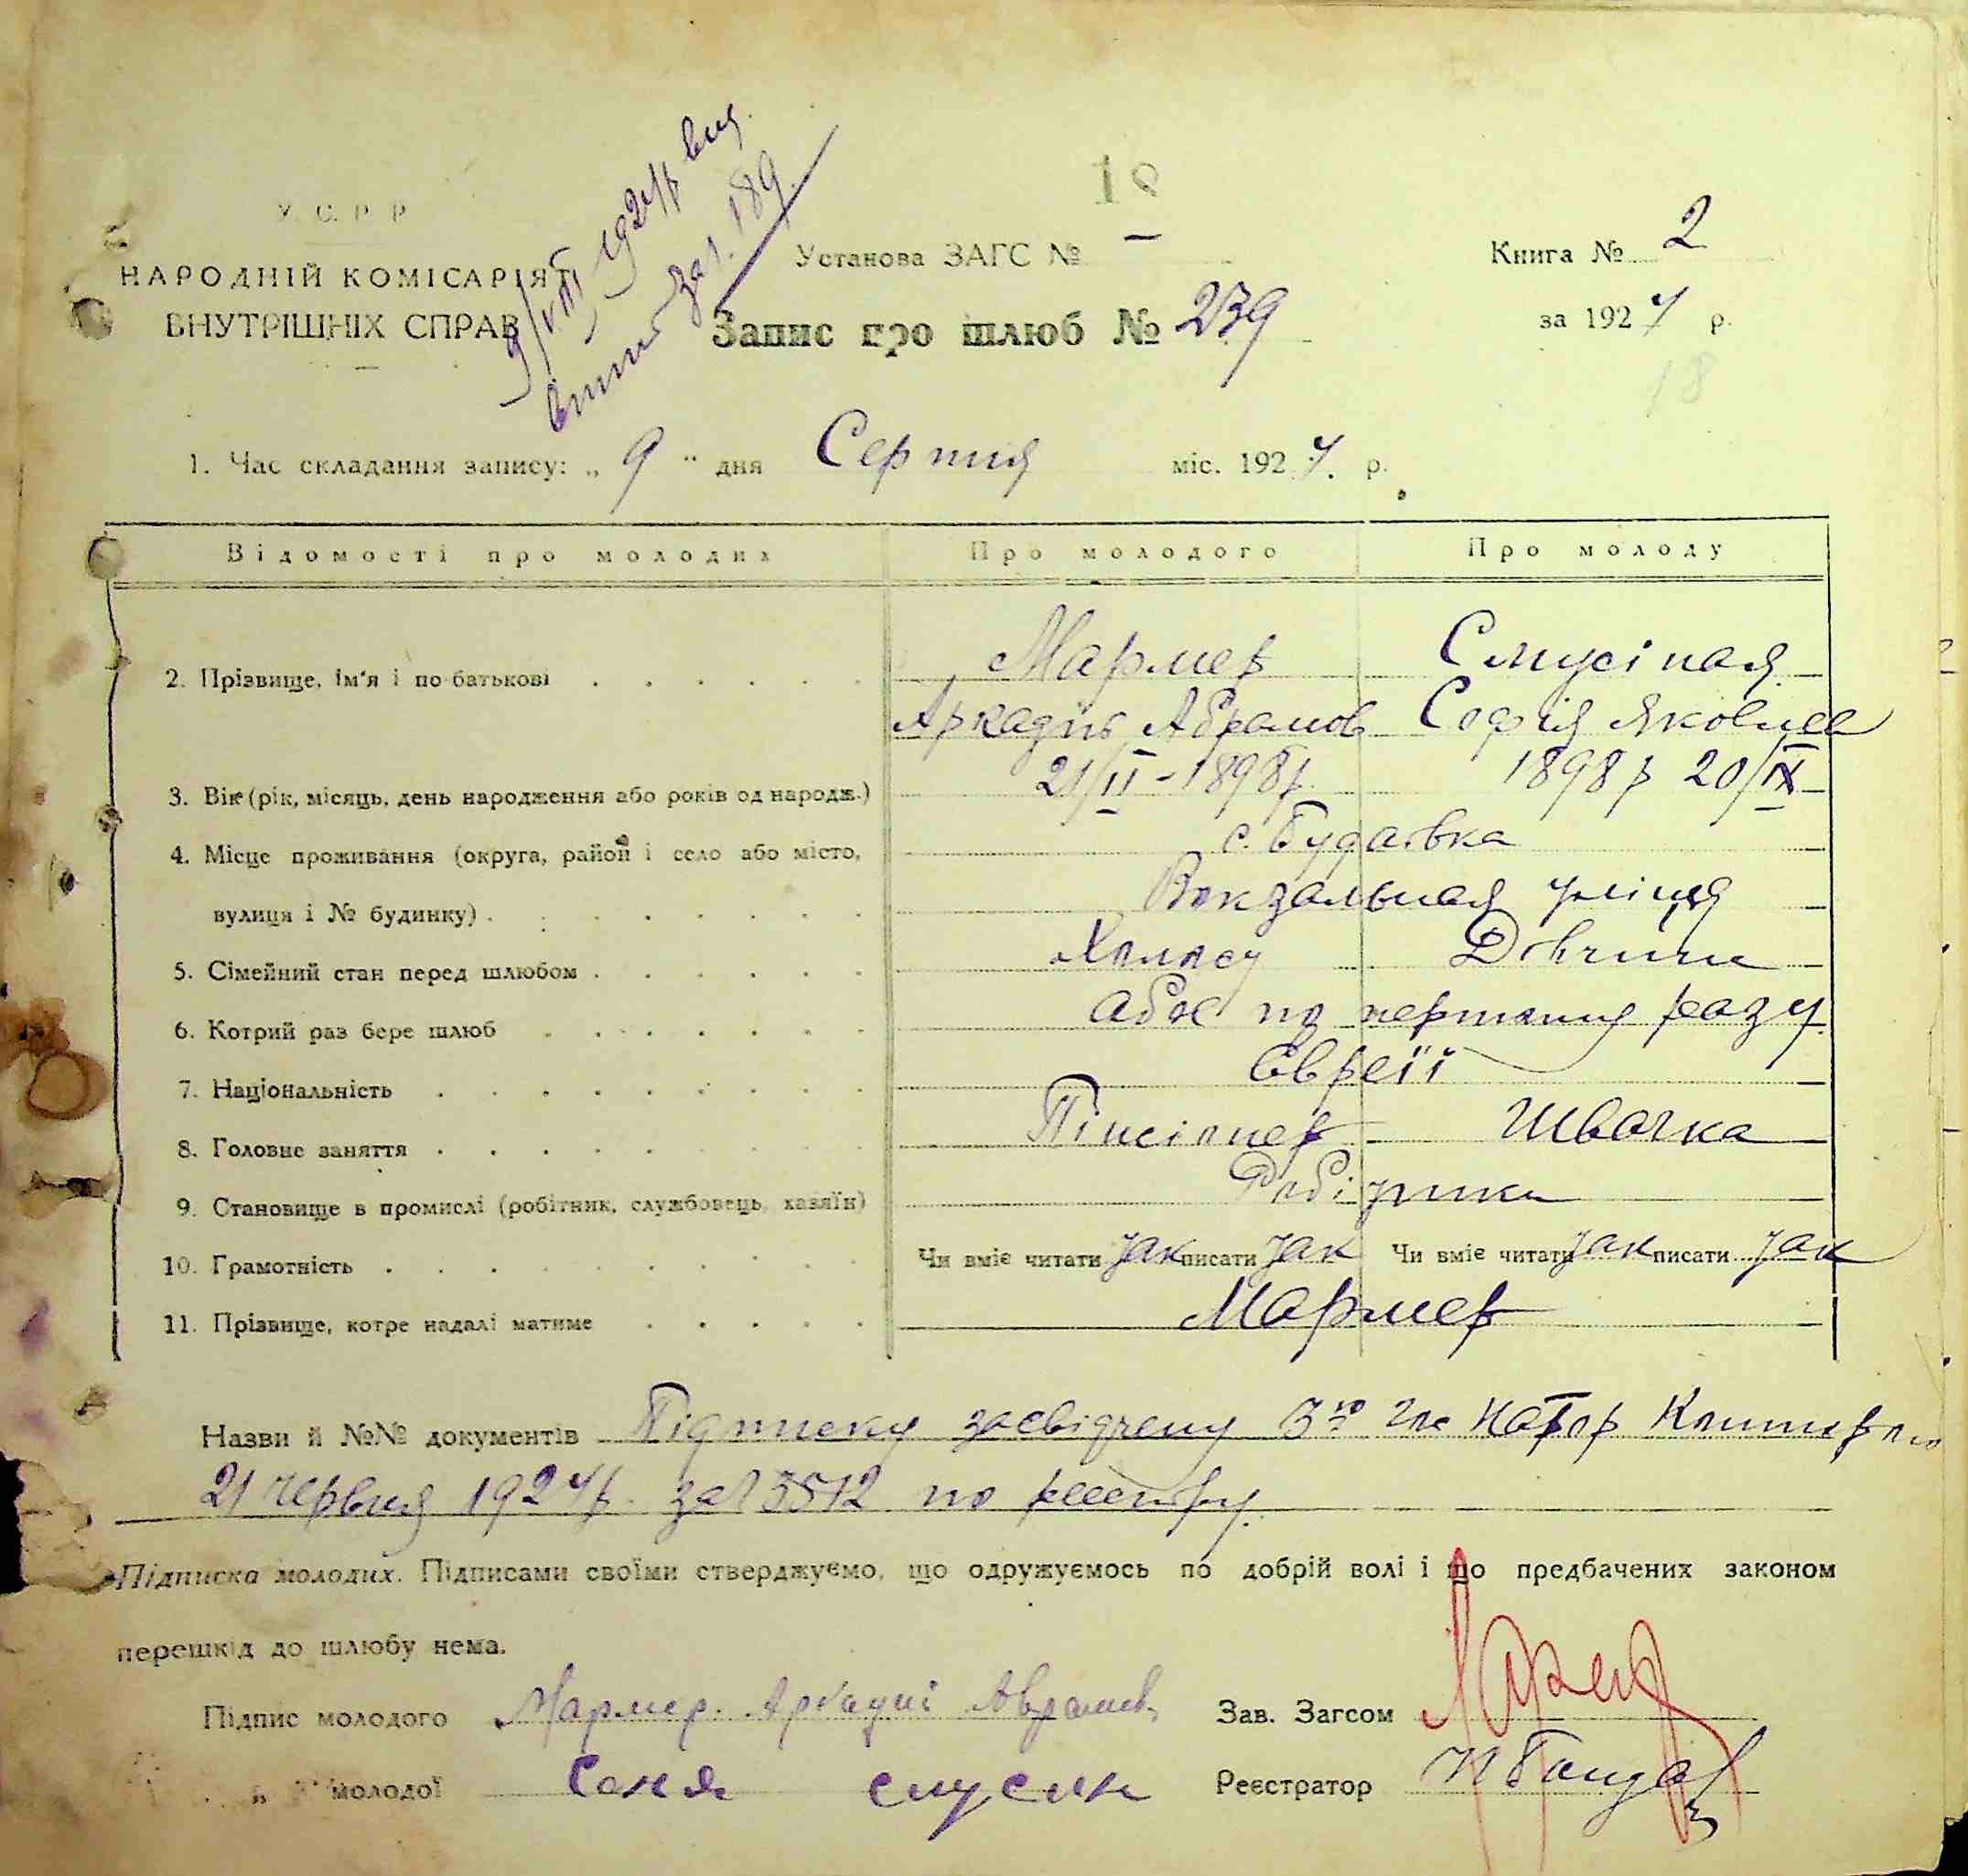 У. С. Р. Р
НАРОДНІЙ КОМІСАРІЯТ
ВНУТРІШНІХ СПРАВ
9/VIII 1924р вид.
за № 189
18
Установа ЗАГС № —
Книга № 2
Запис про шлюб № 239
за 1924 р.
18
1. Час складання запису: „ 9 “ дня Серпня міс. 1924. р.
Відомості про молодих Про молодого Про молоду
2. Прізвище, ім'я і по батькові Мармер
Аркадій Абрамов Софія Яковлев
3. Вік (рік, місяць, день народження або років од народж.) 21/II - 1898р. 1898р 20/IX
4. Місце проживання (округа, район і село або місто, с. Будаївка
вулиця і № будинку) Вокзальная уліця
5. Сімейний стан перед шлюбом Холост Дівчина
6. Котрий раз бере шлюб абоє по першому разу
7. Національність Євреїї
8. Головне заняття Швачка
9. Становище в промислі (робітник, службовець, хазяїн) Робітники
10. Грамотність Чи вміє читати так писати так Чи вміє читати так писати так
11. Прізвище, котре надалі матиме Мармер
Назви й №№ документів Підписку засвідчену 3ю
21 червня 1924р. за № 3512 по реєстру.
Підписка молодих. Підписами своїми стверджуємо, що одружуємось по добрій волі і що предбачених законом
перешкід до шлюбу нема.
Підпис молодого Мармер. Аркадий Аврамов. Зав. Загсом
„ молодої Соня Реєстратор